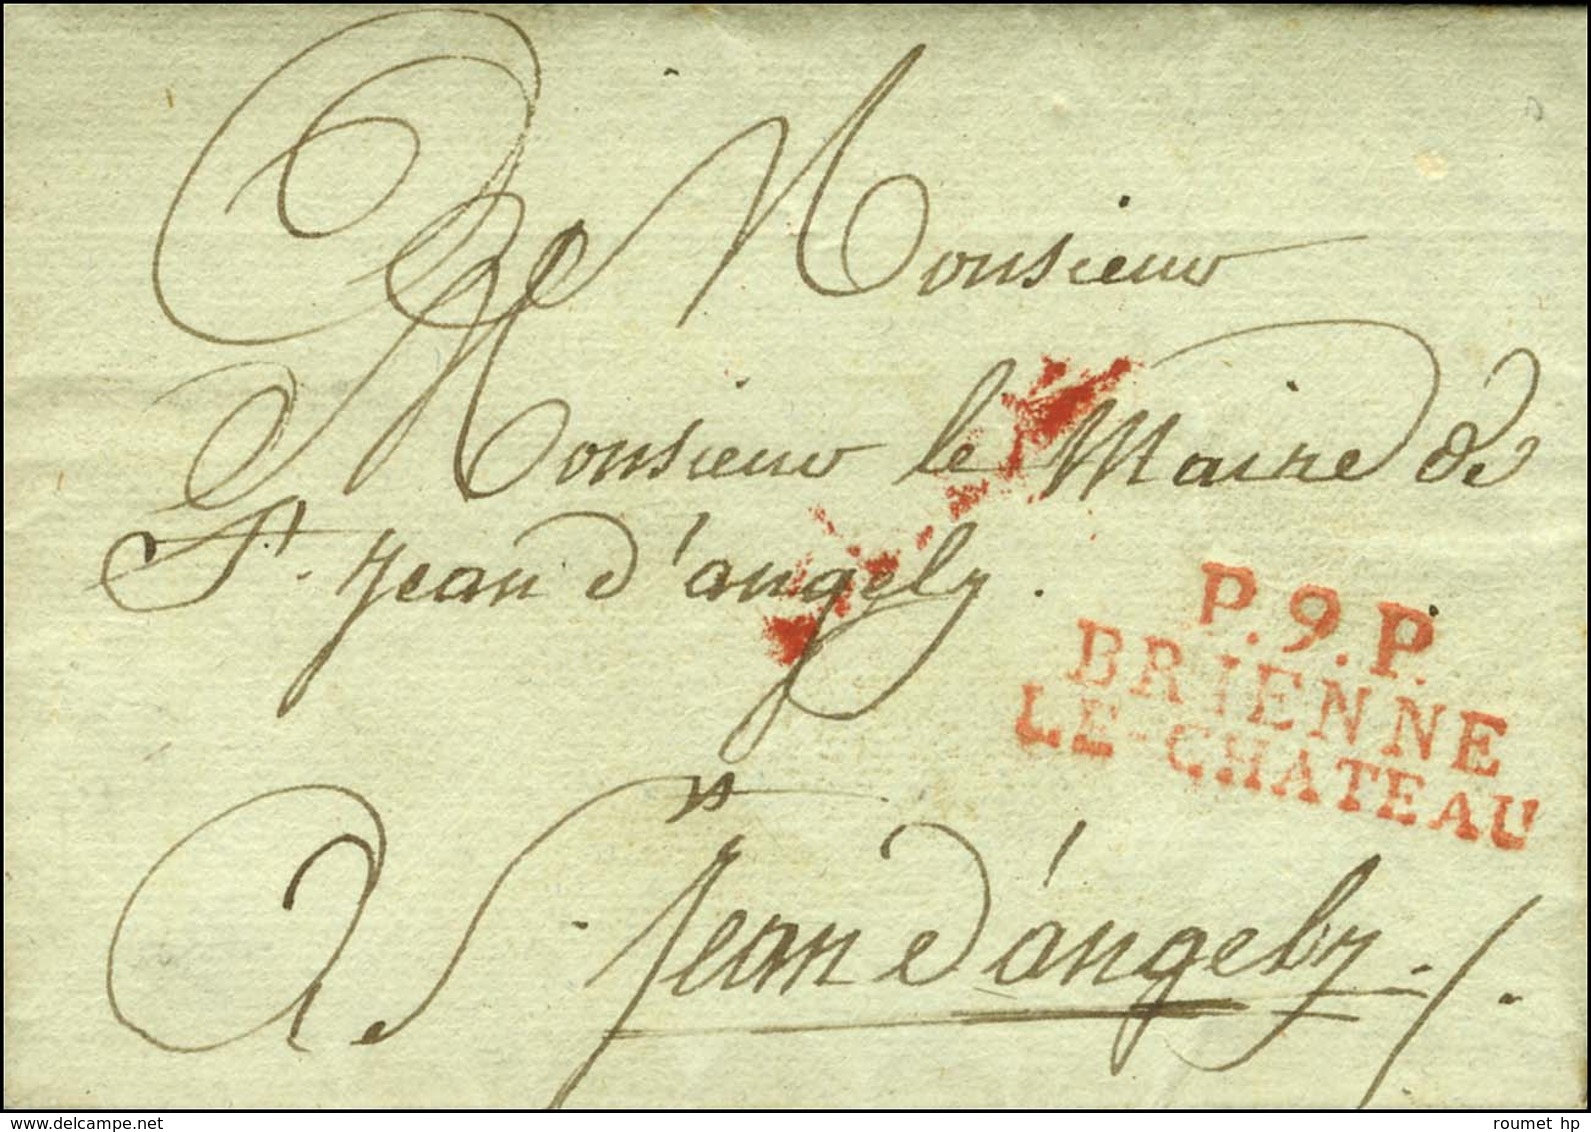 A Monsieur
Monsieur le Maire de
St. Jean d'angely.
P.9.P.
BRIENNE
LE-CHATEAU
A St. Jean d'angely.
delcampe.net
roumet hp